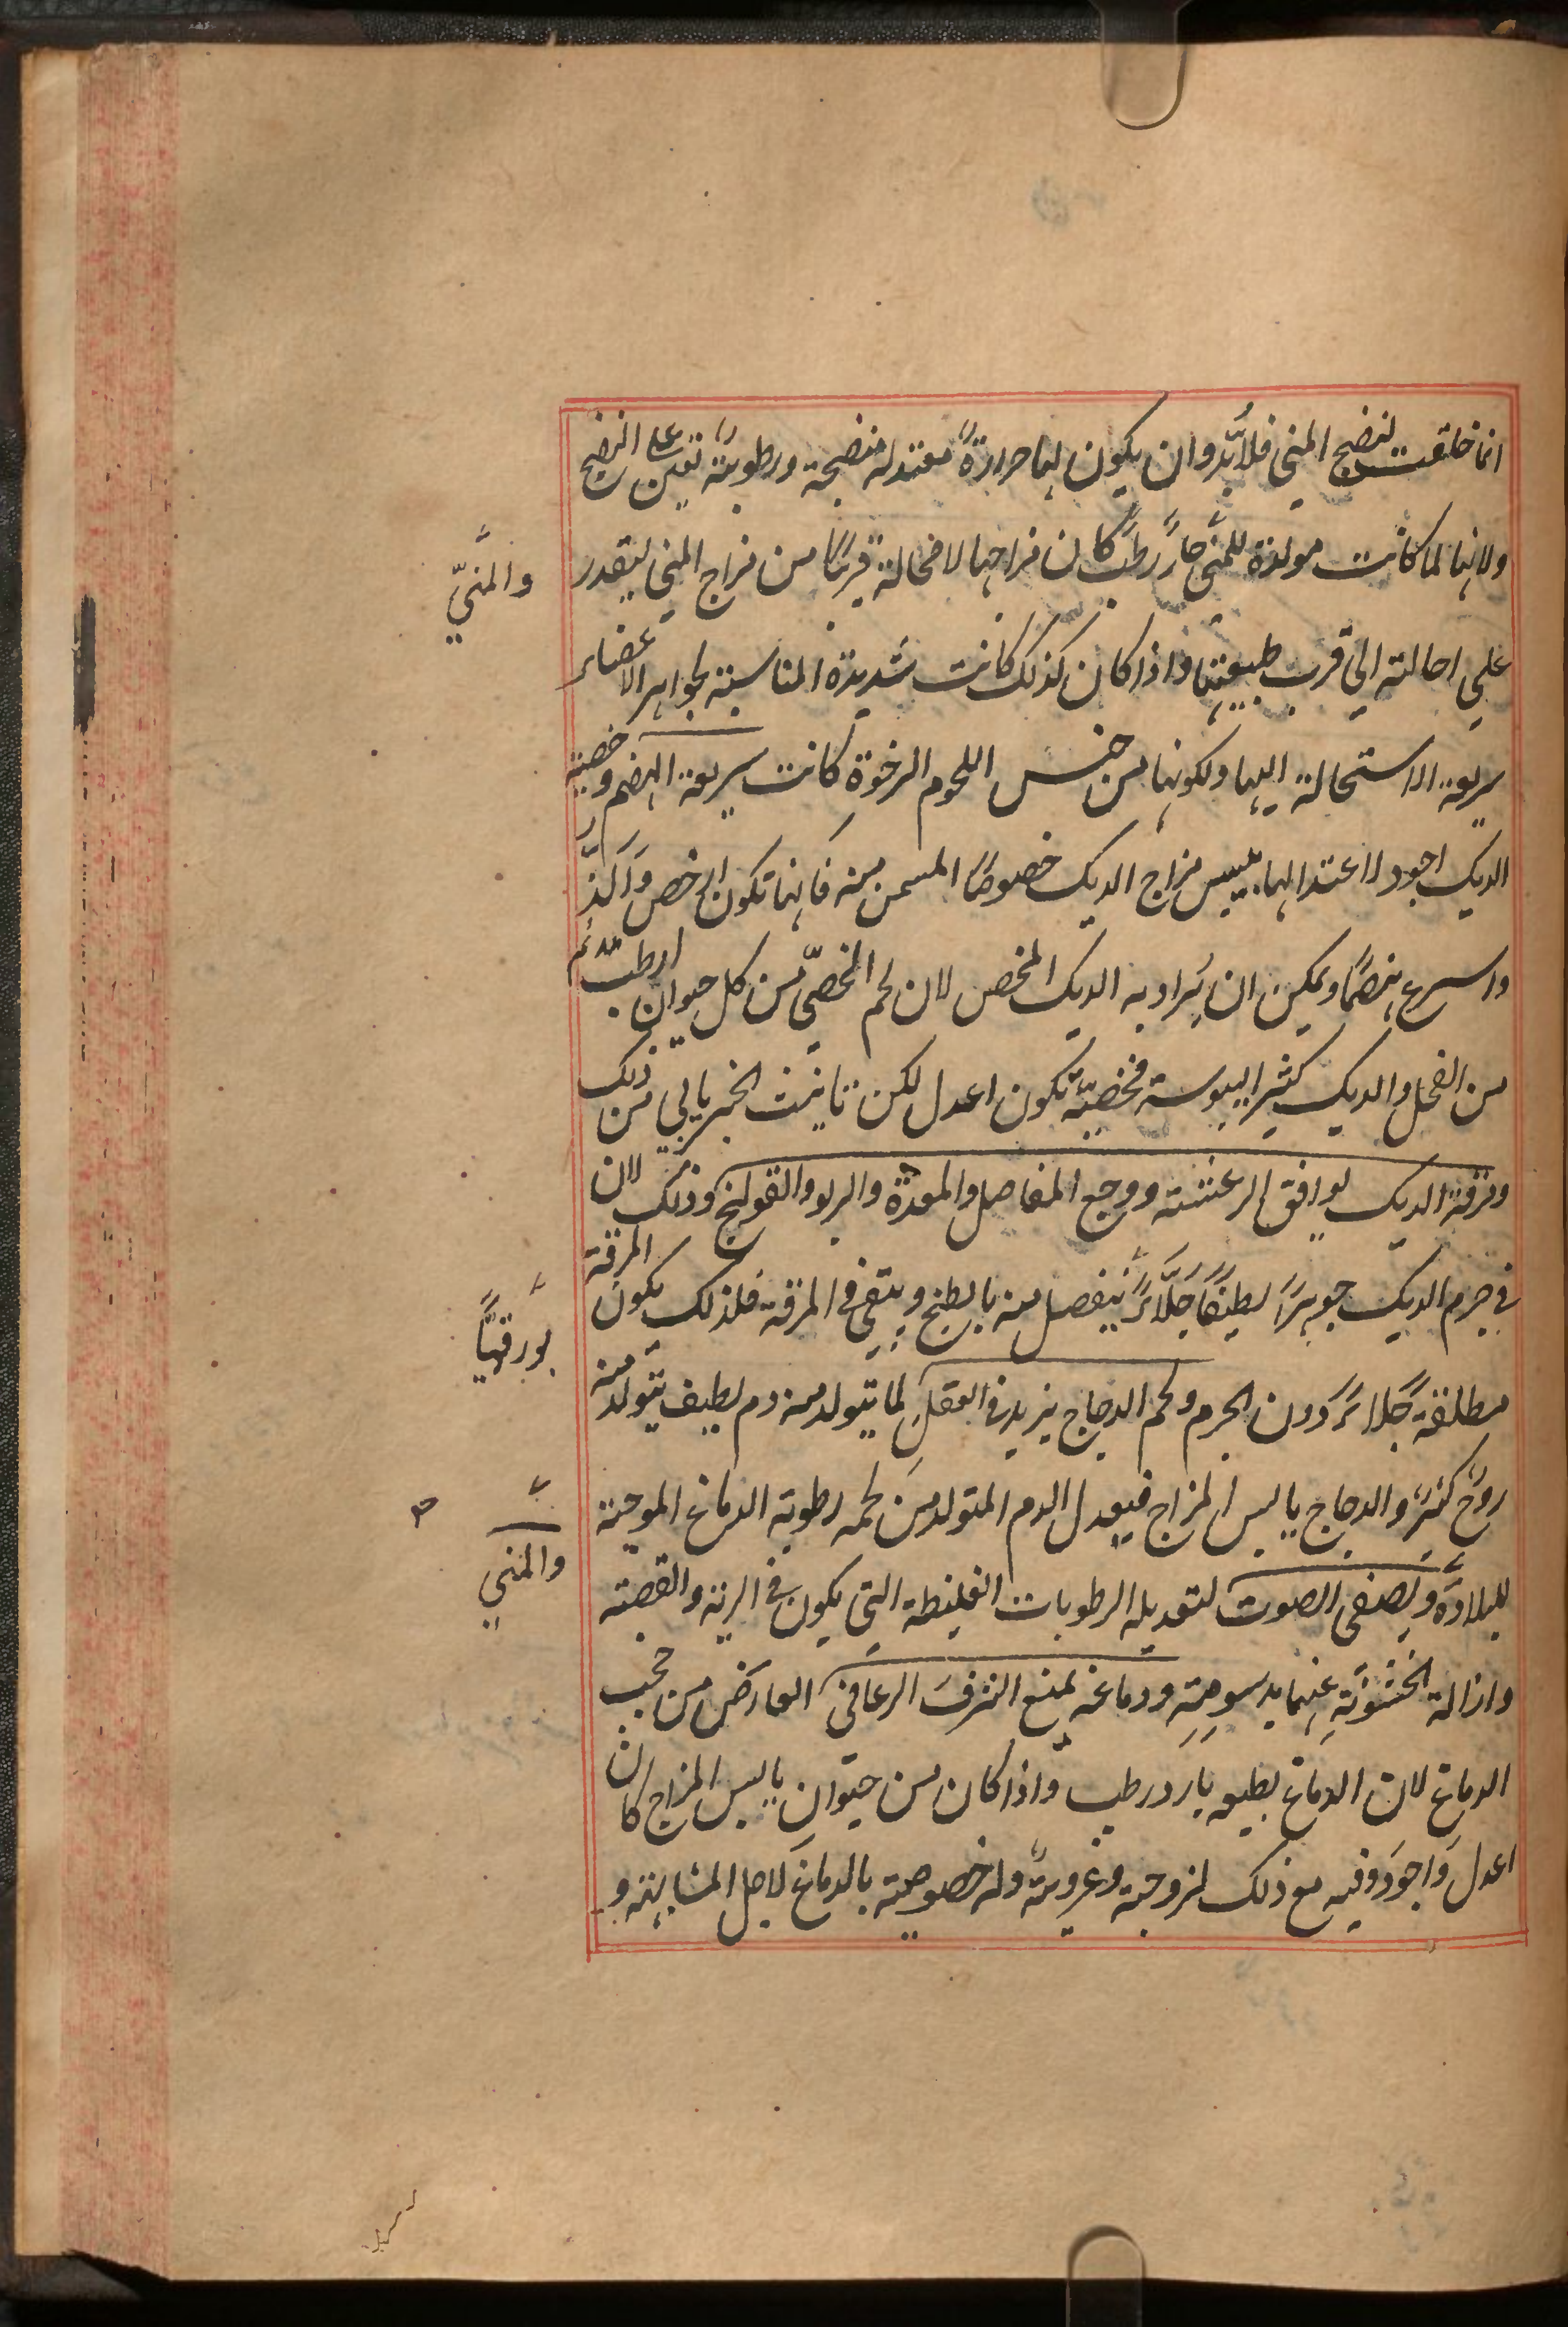 انما خلقت لنضج المني فلابُدّ وان يكون لها حرارةً معتدلة منضجة ورطوبةً تعين على النضج
ولانها لما كانت مولدة للمني حارً رطبً كان مزاجها لا محالة قريبًا من مزاج المني ليقدر
والمنيّ
علي احالته الي قرب طبيعتها واذا كان كذلك كانت شديدة المناسبة لجواهر الاعضاء
سريعة الاستحالة اليها ولكونها من جنس اللحوم الرخوةِ كانت سريعة الهضم وخصية
الديك اجود لاعتدالها بيبس مزاج الديك خصوصًا المسمن منه فانها تكون ارخص وَالَذّ
واسرع هضمًا ويمكن ان يُراد به الديك المخص لان لحم الخصيّ من كل حيوان ارطب
من الفحل والديك كثير اليبوسة فخصيّه تكون اعدل لكن تانيث الخبر يابي من ذلك
ومرقة الديك يوافق الرعشة ووجع المفاصل والمعدة والربو والقولنج وذلك لان
في جرم الديك جوهرًا لطيفًا جلّاءً ينفصل منه بالطبخ ويبقى في المرقة فلذلك يكون المرقة
بورقيًّا
مطلقة جلاءً دون الجرم ولحم الدجاج يزيد في العقلِ لما يتولد منه دم لطيف يتولد منه
روح كثير والدجاج يابس المزاج فيعدل الدم المتولد من لحمه رطوبة الدماغ الموجبة
للبلادة ويصفي الصوت لتعديله الرطوبات الغليظة التي يكون في الرية والقصبة
والمني
وازالة الخشونةِ عنها بدسومتِهِ ودماغه يمنع النزف الرعافي العارض من حجب
الدماغ لان الدماغ بطبعه بارد رطب واذا كان من حيوانٍ يابس المزاج كان
اعدل واجود وفيه مع ذلك لزوجة وغروية وله خصوصية بالدماغ لاجل المشابهة و